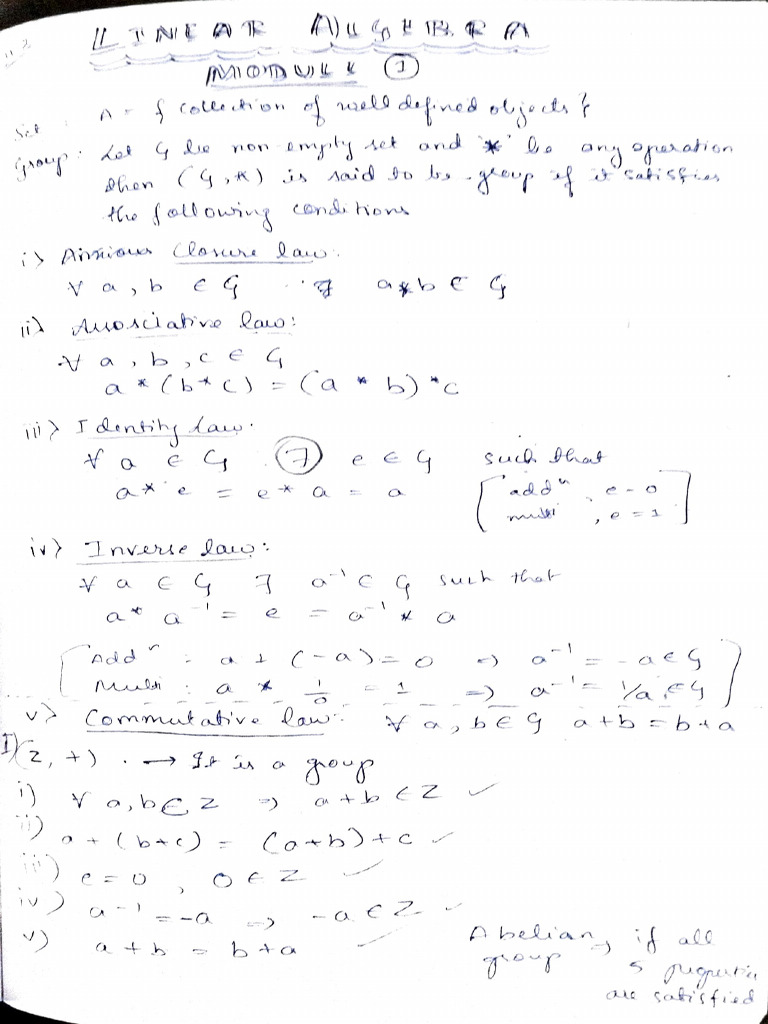 LINEAR ALGEBRA
MODULE ①
Set : A = { collection of well defined objects }
Group : Let G be non empty set and '*' be any operation
then (G,*) is said to be group if it satisfies
the following conditions
i) Closure law:
∀ a, b ∈ G ∃ a*b ∈ G
ii) Associative law:
∀ a, b, c ∈ G
a * (b * c) = (a * b) * c
iii) Identity law:
∀ a ∈ G ∃ e ∈ G such that
a * e = e * a = a
[ addⁿ, e = 0
multi, e = 1 ]
iv) Inverse law:
∀ a ∈ G ∃ a⁻¹ ∈ G such that
a * a⁻¹ = e = a⁻¹ * a
[ Addⁿ : a + (-a) = 0 ⇒ a⁻¹ = -a ∈ G
Multi : a * 1/a = 1 ⇒ a⁻¹ = 1/a ∈ G ]
v) Commutative law: ∀ a, b ∈ G a+b = b+a
I) (Z, +) . → It is a group
i) ∀ a, b ∈ Z ⇒ a+b ∈ Z ✓
ii) a + (b+c) = (a+b)+c ✓
iii) e = 0 , 0 ∈ Z ✓
iv) a⁻¹ = -a ⇒ -a ∈ Z ✓
v) a + b = b + a ✓
Abelian group, if all
5 properties
are satisfied